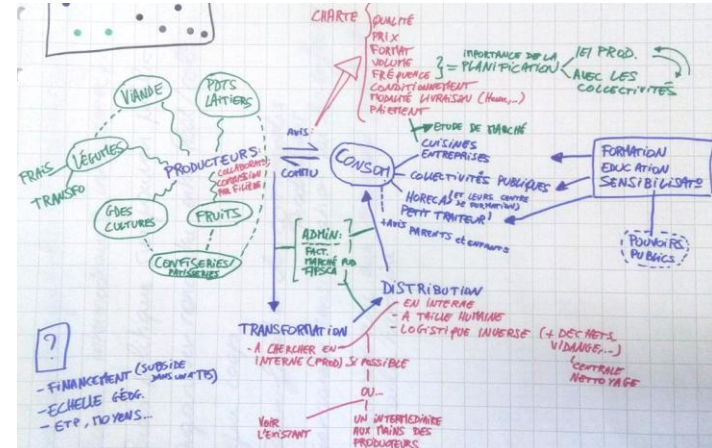 CHARTE
QUALITÉ
PRIX
FORMAT
VOLUME
FRÉQUENCE
CONDITIONNEMENT
MODALITÉ LIVRAISON (HEURE,...)
PAIEMENT
IMPORTANCE DE LA
PLANIFICATION
PROD.
AVEC LES
COLLECTIVITÉS
VIANDE
PDTS
LAITIERS
LÉGUMES
FRAIS
TRANSFO
GDES
CULTURES
FRUITS
CONFISERIES/
PATISSERIES
PRODUCTEURS:
PAR FILIÈRE
AVIS:
CONSOM
ETUDE DE MARCHÉ
CUISINES
ENTREPRISES
COLLECTIVITÉS PUBLIQUES
HORECA (ET LEURS CENTRE
DE FORMATION)
PETIT TRAITEUR!
+AVIS PARENTS et ENFANTS
FORMATION
EDUCATION
SENSIBILISATO
POUVOIRS
PUBLICS
ADMIN:
FACT.
MARCHÉ PUB
DISTRIBUTION
- EN INTERNE
- A TAILLE HUMAINE
- LOGISTIQUE INVERSE (+ DECHETS,
VIDANGE,...)
CENTRALE
NETTOYAGE
TRANSFORMATION
- A CHERCHER EN
INTERNE (PROD) SI POSSIBLE
OU...
VOIR
L'EXISTANT
UN INTERMEDIAIRE
AUX MAINS DES
PRODUCTEURS
?
- FINANCEMENT (SUBSIDE
- ECHELLE GÉOG.
- ETP, MOYENS...